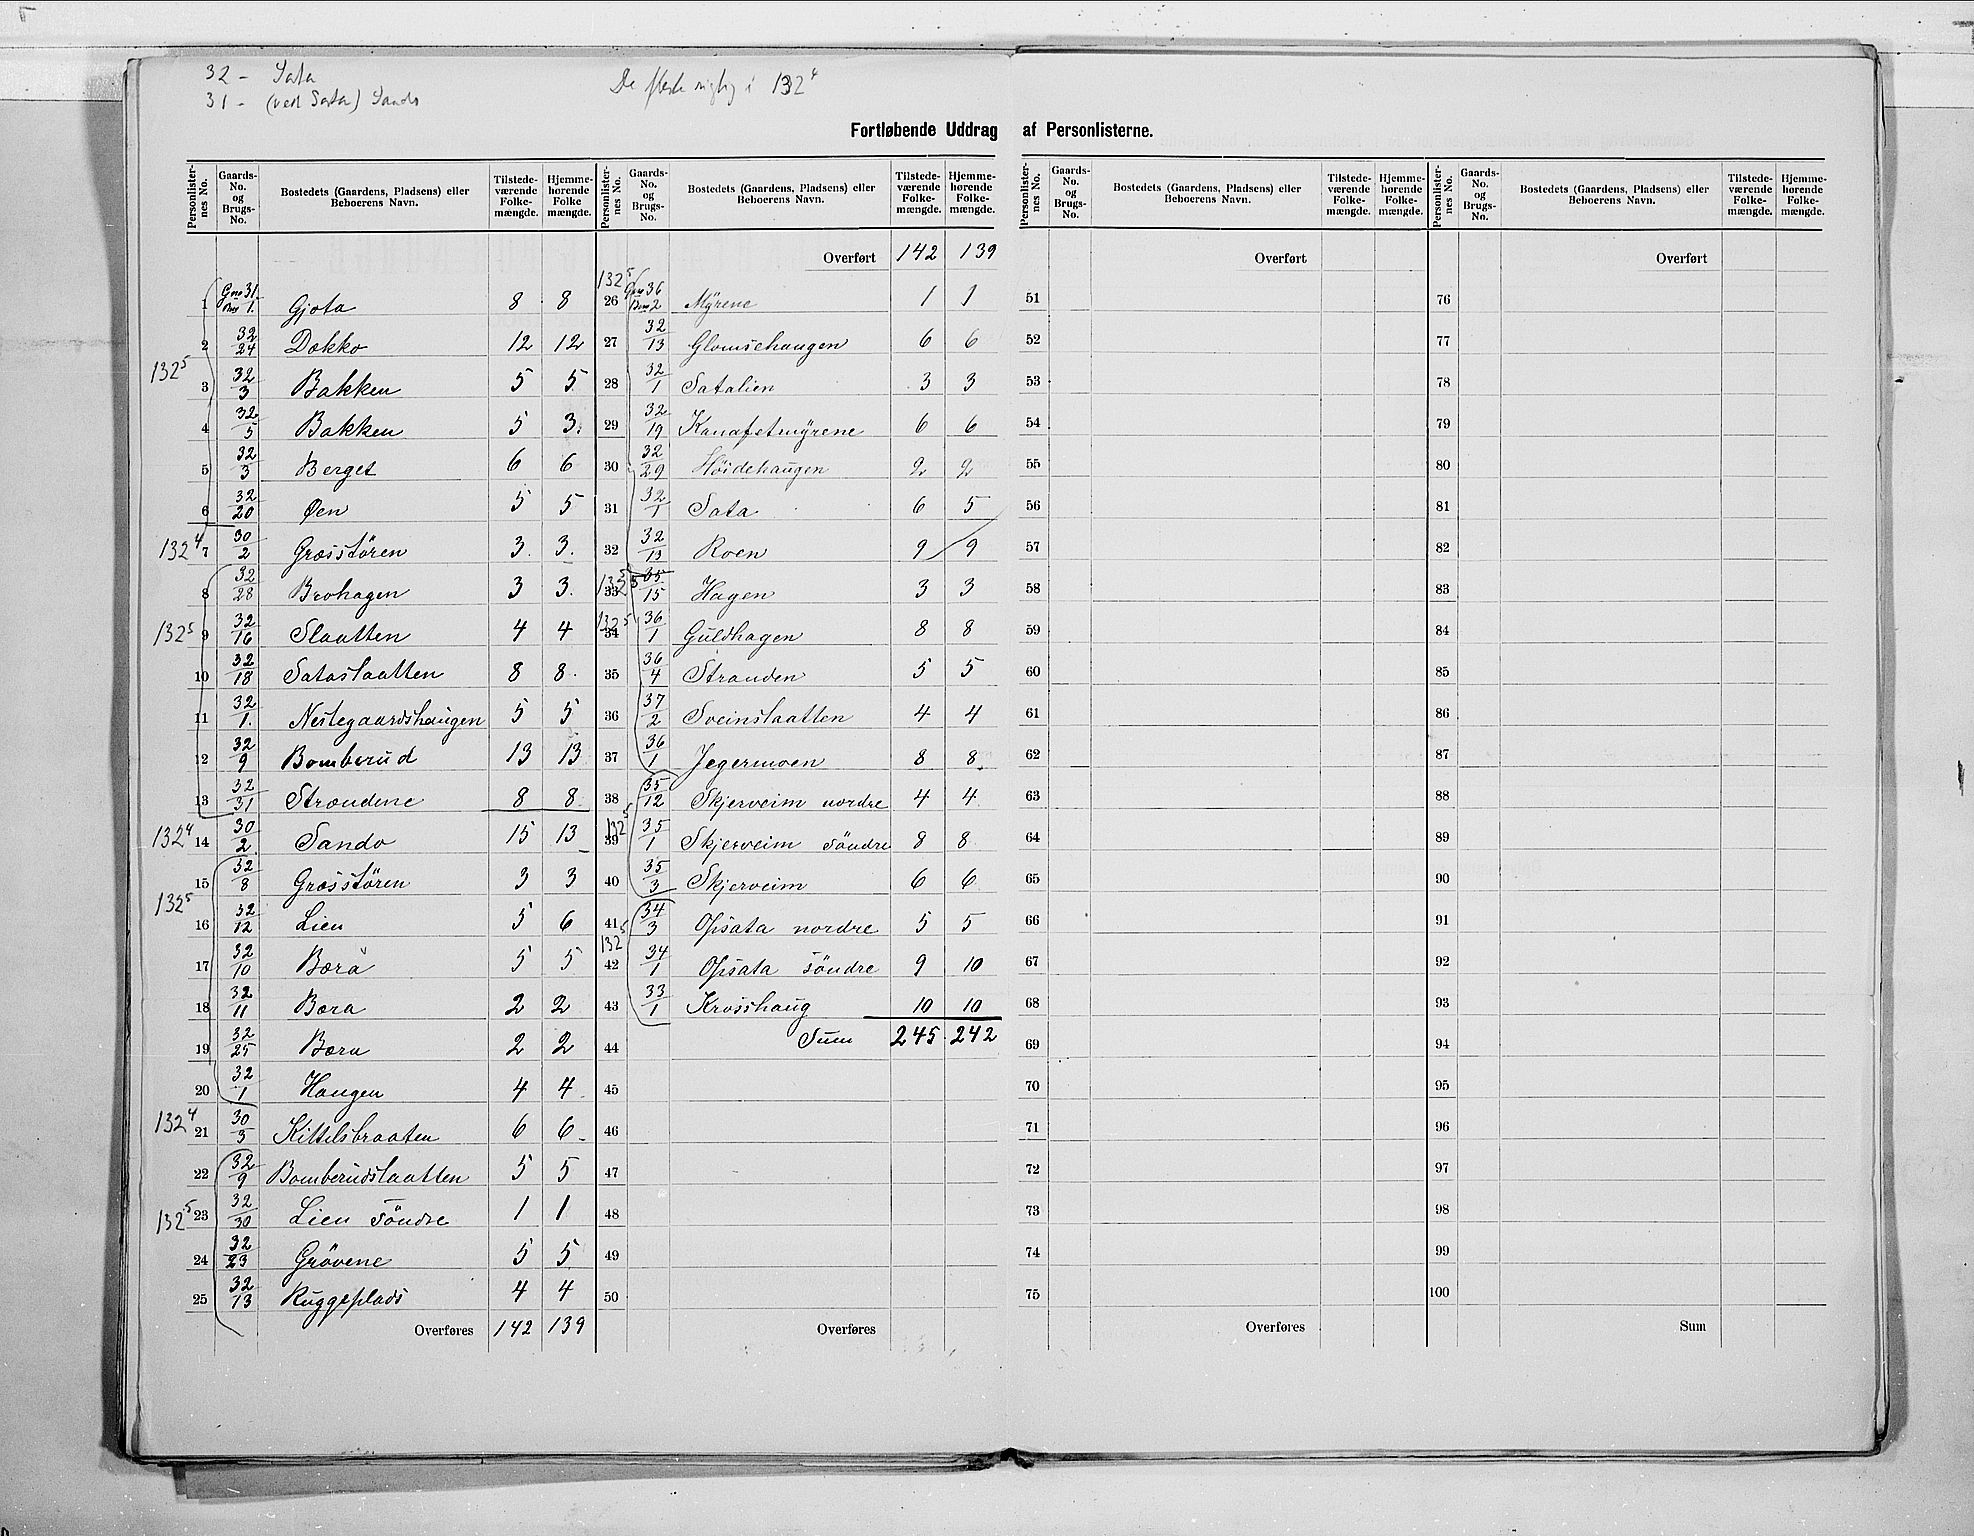 32 - Sata
31 - (ved Sata) Sando
De fleste rigtig i 132⁴
Fortløbende Uddrag af Personlisterne.
Personlister-nes No. | Gaards-No. og Brugs-No. | Bostedets (Gaardens, Pladsens) eller Beboerens Navn. | Tilstede-værende Folke-mængde. | Hjemme-hørende Folke mængde.
1 Gno 31 Bno 1. Gjota 8 8
2 32/24 Dokko 12 12
132⁵
3 32/3 Bakken 5 5
4 32/5 Bakken 5 3.
5 32/3 Berget 6 6
6 32/20 Øen 5 5
132⁴ 7 30/2 Græsstören 3. 3.
8 32/28 Brohagen 3 3.
132⁵ 9 32/16 Slaatten 4 4
10 32/18 Sataslaatten 8 8.
11 32/1. Nestegaardshaugen 5 5
12 32/9 Bomberud 13 13
13 32/31 Strandene 8 8
132⁴ 14 30/2 Sando 15 13
15 32/8 Græsstören 3 3
132⁵
16 32/12 Lien 5 6
17 32/10 Bæra 5 5
18 32/11 Bæra 2 2
19 32/25 Bæra 2 2
20 32/1 Haugen 4 4
132⁴ 21 30/3 Kittelsbraaten 6 6
22 32/9 Bomberudslaatten 5 5
132⁵ 23 32/30 Lien söndre 1 1
24 32/23 Grövene 5 5
25 32/13 Ruggeplads 4 4
Overføres 142 139
Personlister-nes No. | Gaards-No. og Brugs-No. | Bostedets (Gaardens, Pladsens) eller Beboerens Navn. | Tilstede-værende Folke-mængde. | Hjemme-hørende Folke-mængde.
Overført 142 139
132⁵
26 Gno 36 Bno 2 Mÿrene 1 1
27 32/13 Glomsehaugen 6 6
28 32/1 Satalien 3 3
29 32/19 Kanafetmÿrene 6 6
30 32/29 Höidehaugen 2 2
31 32/1 Sata 6 5
32 32/13 Roen 9 9
132⁵ 33 35/15 Hagen 3 3
132⁵ 34 36/1 Guldhagen 8 8
35 36/4 Stranden 5 5
36 37/2 Sveinslaatten 4 4
37 36/1 Jegermoen 8 8
38 35/12 Skjerveim nordre 4 4
132⁵ 39 35/1 Skjerveim söndre 8 8
40 35/3 Skjerveim 6 6
41 34/3 Opsata nordre 5 5
132⁵
42 34/1 Opsata söndre 9 10
43 33/1 Krosshaug 10 10
44 Sum 245 242
45
46
47
48
49
50
Overføres
Personlister-nes No. | Gaards-No. og Brugs-No. | Bostedets (Gaardens, Pladsens) eller Beboerens Navn. | Tilstede-værende Folke-mængde. | Hjemme-hørende Folke-mængde.
Overført
51
52
53
54
55
56
57
58
59
60
61
62
63
64
65
66
67
68
69
70
71
72
73
74
75
Overføres
Personlister-nes No. | Gaards-No. og Brugs-No. | Bostedets (Gaardens, Pladsens) eller Beboerens Navn. | Tilstede-værende Folke-mængde. | Hjemme-hørende Folke-mængde.
Overført
76
77
78
79
80
81
82
83
84
85
86
87
88
89
90
91
92
93
94
95
96
97
98
99
100
Sum